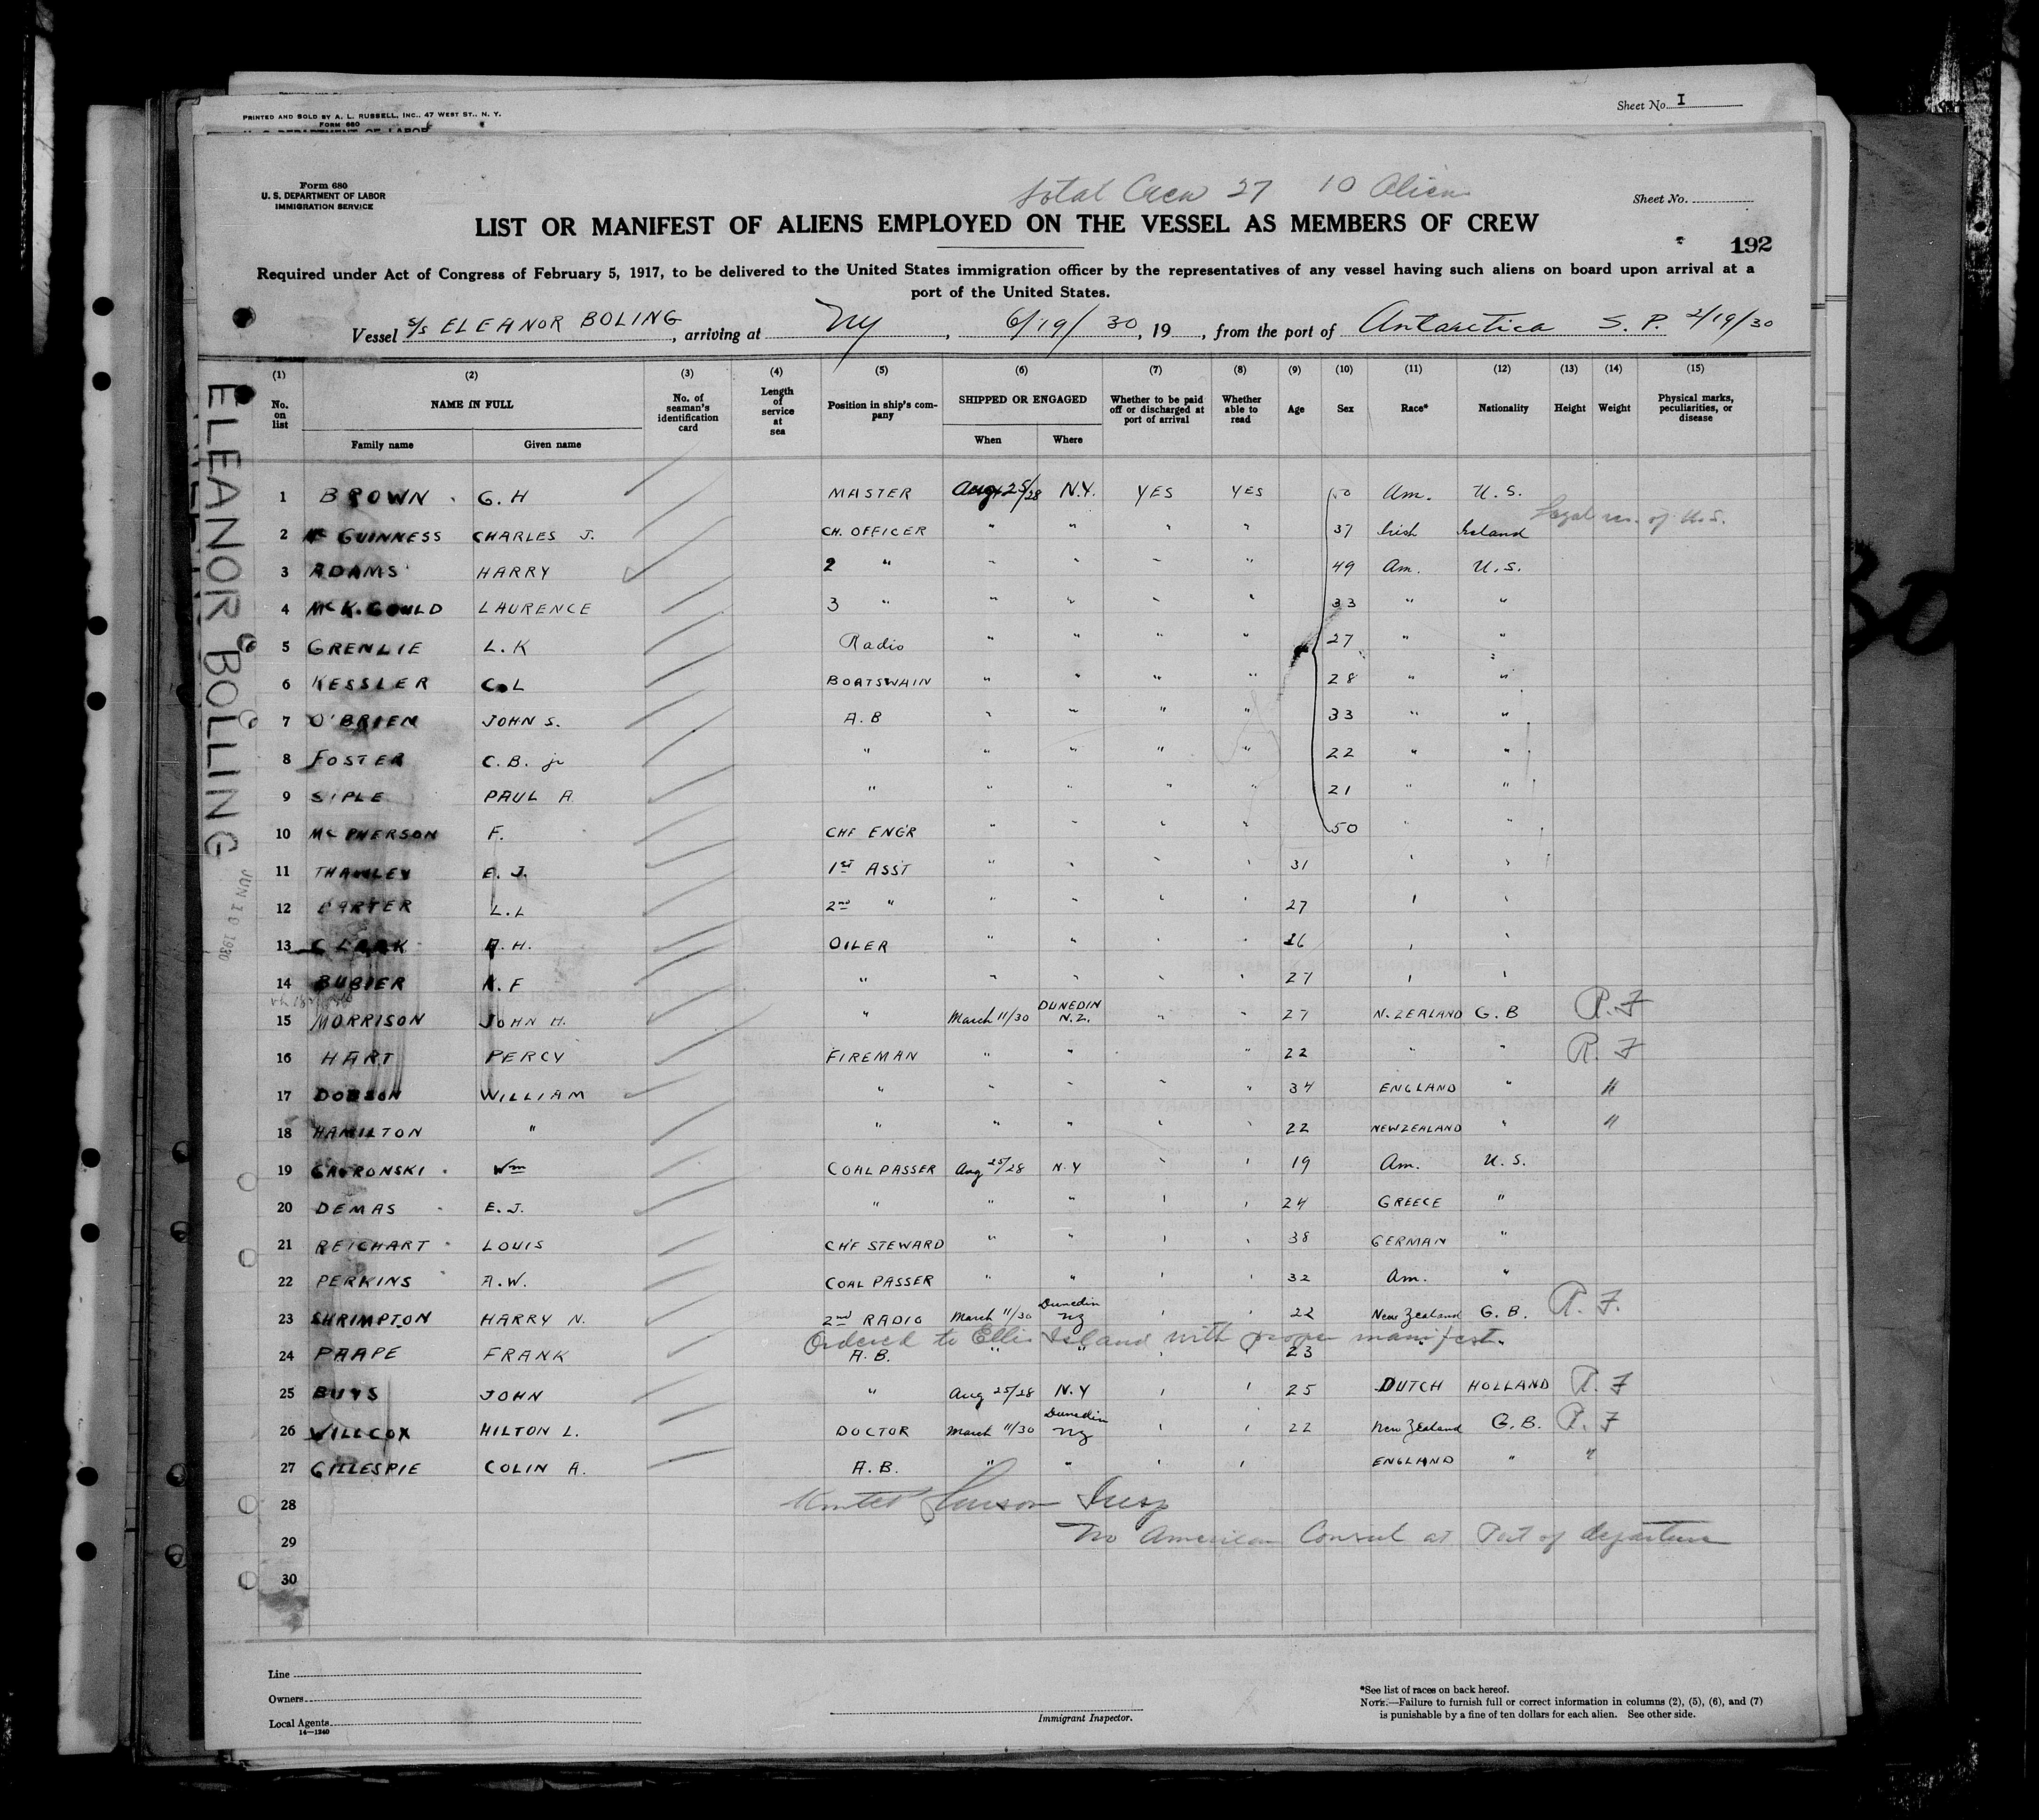 PRINTED AND SOLD BY A. L. RUSSELL, INC., 47 WEST ST., N. Y.
FORM 680
Sheet No. I
U. S. DEPARTMENT OF LABOR
Form 680
U. S. DEPARTMENT OF LABOR
IMMIGRATION SERVICE
total Crew 27 10 Alien
Sheet No.
LIST OR MANIFEST OF ALIENS EMPLOYED ON THE VESSEL AS MEMBERS OF CREW
192
Required under Act of Congress of February 5, 1917, to be delivered to the United States immigration officer by the representatives of any vessel having such aliens on board upon arrival at a
port of the United States.
Vessel S/S ELEANOR BOLING, arriving at NY, 6/19/30, 19, from the port of Antarctica S. P. 2/19/30
(1) (2) (3) (4) (5) (6) (7) (8) (9) (10) (11) (12) (13) (14) (15)
No. on list NAME IN FULL No. of seaman's identification card Length of service at sea Position in ship's company SHIPPED OR ENGAGED Whether to be paid off or discharged at port of arrival Whether able to read Age Sex Race* Nationality Height Weight Physical marks, peculiarities, or disease
Family name Given name When Where
1 BROWN G. H MASTER Aug 25/28 N.Y. YES YES 50 Am. U. S.
Legal res. of U.S.
2 Mc GUINNESS CHARLES J. CH. OFFICER " " " " 37 Irish Ireland
3 ADAMS HARRY 2 " " " " " 49 Am. U.S.
4 McK. GOULD LAURENCE 3 " " " " " 33 " "
5 GRENLIE L. K Radio " " " " 27 " "
6 KESSLER C. L BOATSWAIN " " " " 28 " "
7 O'BRIEN JOHN S. A. B " " " " 33 " "
8 FOSTER C. B. jr " " " " " 22 " "
9 SIPLE PAUL A. " " " " " 21 " "
10 Mc PHERSON F. CHF ENG'R " " " " 50 " "
11 THAWLEY E. J. 1st ASST " " " " 31 " "
12 CARTER L. L 2nd " " " " " 27 " "
13 CLARK A. H. OILER " " " " 26 " "
14 BUBIER K. F " " " " " 27 " "
15 MORRISON JOHN H. " March 11/30 DUNEDIN N.Z. " " 27 N. ZEALAND G. B R. F
16 HART PERCY FIREMAN " " " " 22 " " R. F
17 DOBSON WILLIAM " " " " " 34 ENGLAND " "
18 HAMILTON " " " " " " 22 NEW ZEALAND " "
19 GAVRONSKI Wm COAL PASSER Aug 25/28 N.Y " " 19 Am. U. S.
20 DEMAS E. J. " " " " " 24 GREECE "
21 REICHART LOUIS CHF STEWARD " " " " 38 GERMAN "
22 PERKINS A. W. COAL PASSER " " " " 32 Am. "
23 SHRIMPTON HARRY N. 2nd RADIO March 11/30 Dunedin NZ " " 22 New Zealand G. B. R. F.
Ordered to Ellis Island with proper manifest.
24 PAAPE FRANK A. B. " " " " 23 " "
25 BUYS JOHN " Aug 25/28 N.Y " " 25 DUTCH HOLLAND R. F
26 WILLCOX HILTON L. DOCTOR March 11/30 Dunedin NZ " " 22 New Zealand G. B. R. F
27 GILLESPIE COLIN A. A. B. " " " " ENGLAND " "
28 Insp
29 No American Consul at Port of departure
30
ELEANOR BOLLING
JUN 1930
30
Line
Owners
Local Agents
14—1240
Immigrant Inspector.
*See list of races on back hereof.
NOTE.—Failure to furnish full or correct information in columns (2), (5), (6), and (7)
is punishable by a fine of ten dollars for each alien. See other side.